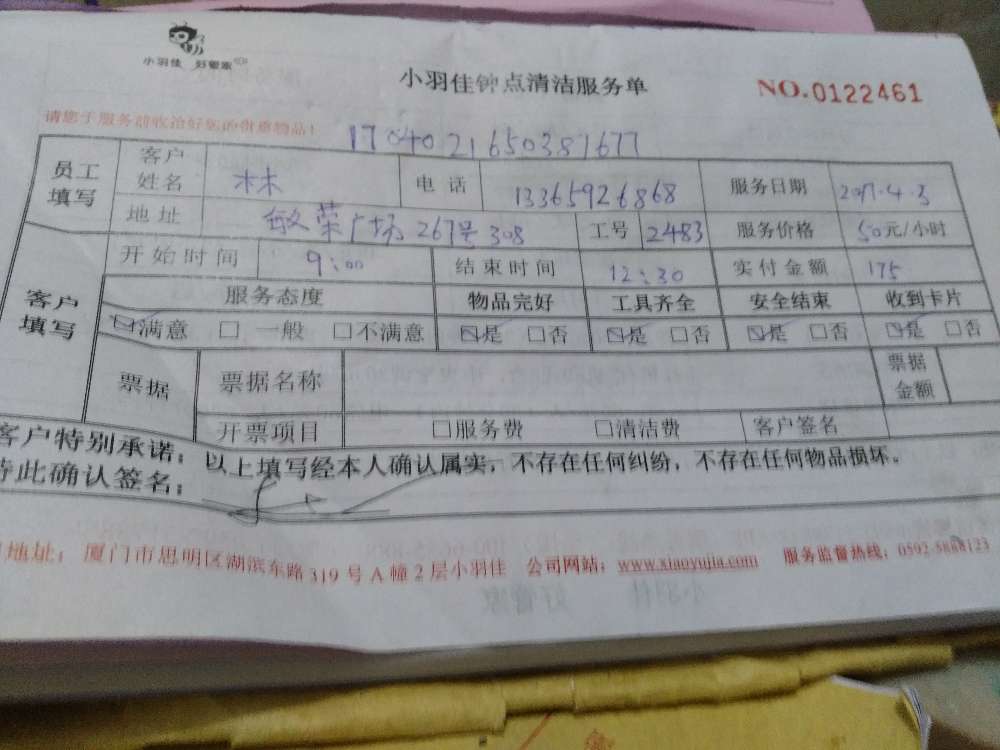 小羽佳 好管家
小羽佳钟点清洁服务单
NO.0122461
请您于服务前收治好您的贵重物品!
1704021650381677
员工填写 客户姓名 林 电话 13365926868 服务日期 2017.4.3
地址 敏荣广场267号308 工号 2483 服务价格 50元/小时
客户填写 开始时间 9:00 结束时间 12:30 实付金额 175
服务态度 物品完好 工具齐全 安全结束 收到卡片
☑满意 □一般 □不满意 ☑是 □否 ☑是 □否 ☑是 □否 ☑是 □否
票据 票据名称 票据金额
开票项目 □服务费 □清洁费 客户签名
客户特别承诺:以上填写经本人确认属实,不存在任何纠纷,不存在任何物品损坏。
特此确认签名:
地址:厦门市思明区湖滨东路319号A幢2层小羽佳 公司网站:www.xiaoyujia.com 服务监督热线:0592-5888123